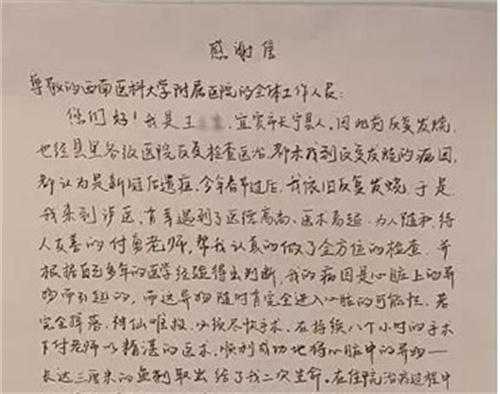 感谢信
尊敬的西南医科大学附属医院的全体工作人员:
你们好!我是王 ,宜宾市长宁县人,因此前反复发烧,
也经县里各级医院反复检查医治,都未找到反复发烧的病因,
都认为是新冠后遗症,今年春节过后,我依旧反复发烧,于是,
我来到泸医,有幸遇到了医德高尚、医术高超、为人随和、待
人友善的付勇老师,帮我认真的做了全方位的检查,并
根据自己多年的医学经验得出判断,我的病因是心脏上的异
物而引起的,而这异物随时有完全进入心脏的可能性,若
完全掉落,神仙难救,必须尽快手术,在持续八个小时的手术
下付老师以精湛的医术,顺利成功地将心脏中的异物一
长达三厘米的鱼刺取出给了我二次生命,在住院治病过程中